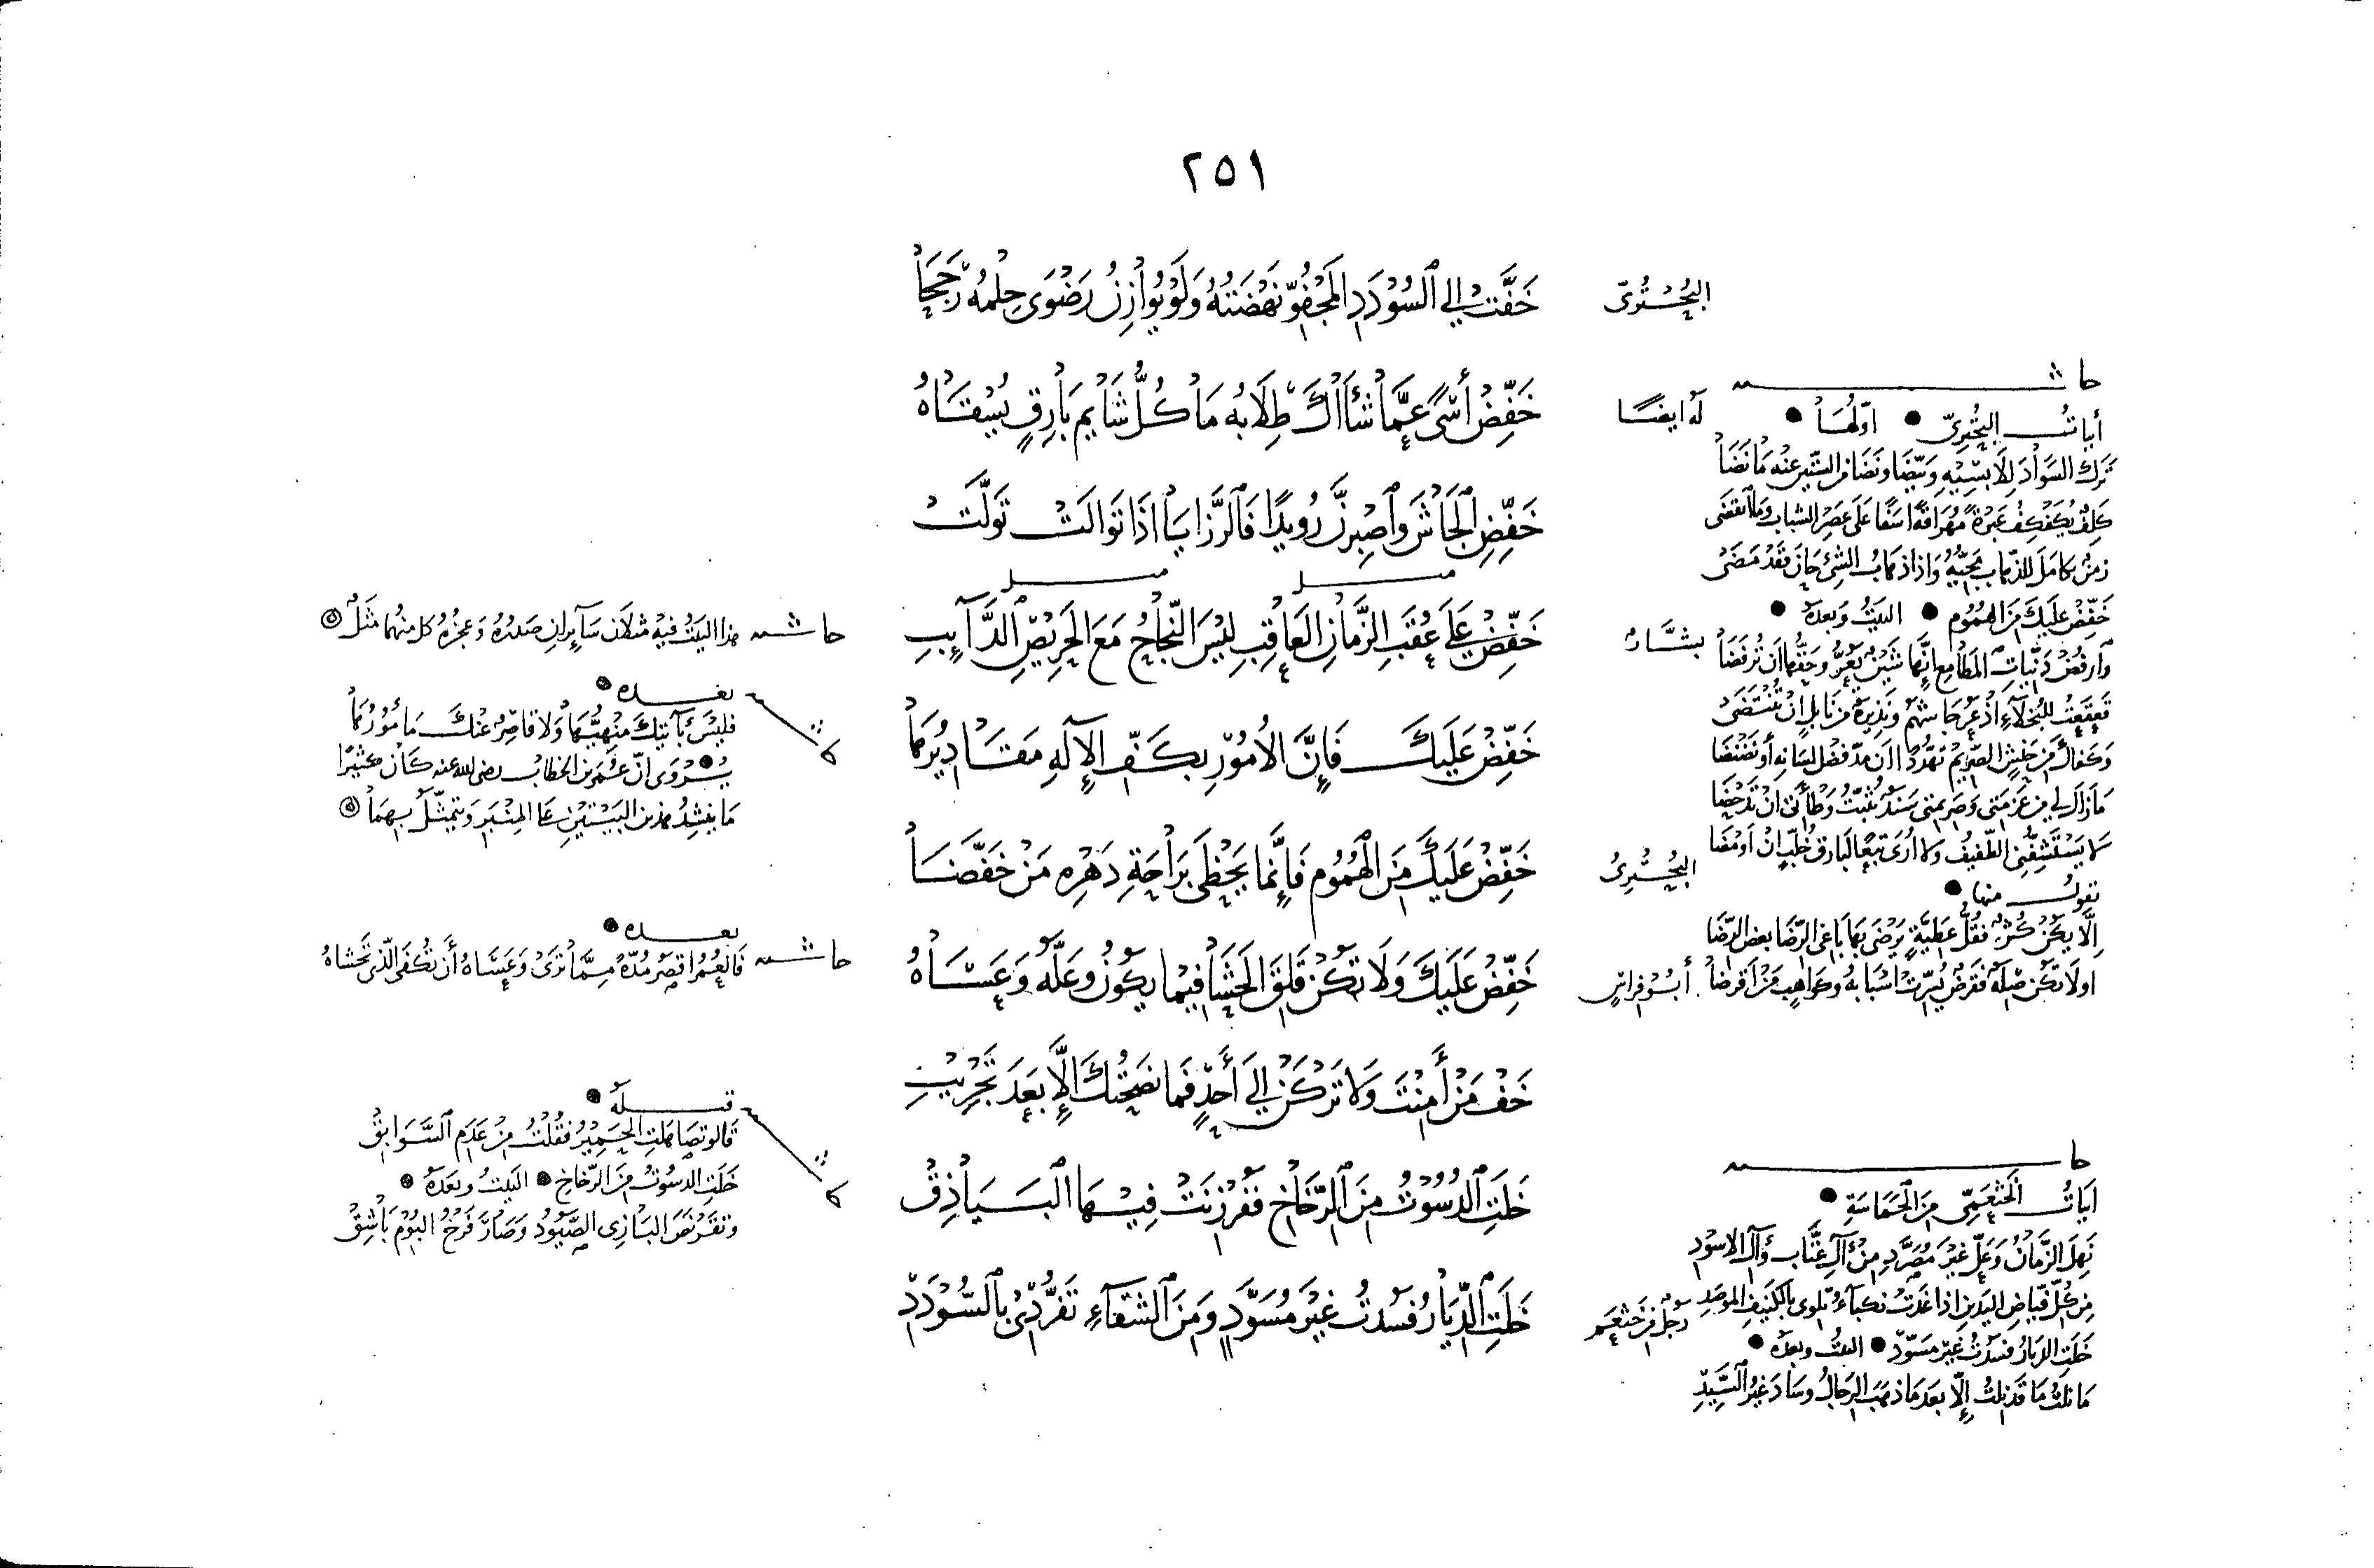 ٢٥١
البُحْتُريّ
خَفَّتْ إِلى السُّوْدَدِ المَجْفُوِّ نَهْضَتُهُ وَلَوْ يُوَازِنُ رَضْوَى حِلْمُهُ رَجَحَا
لَهُ ايضًا
خَفِّضْ أَسًى عَمَّا شَأَاكَ طِلَابُه مَا كُلُّ شَايِمِ بَارِقٍ يُسْقَاهُ
خَفِّضِ الجَاشَ وَاصْبِرَنَّ رُوَيْدًا فَالرَّزايَا اذَا تَوَالَتْ تَوَلَّتْ
بشَّارٌ
خَفِّضْ عَلَى عُقَبِ الزَّمَانِ العَاقِبِ لَيْسَ النَّجَاحُ مَعَ الحَرِيْصِ الدَّآئِبِ
خَفِّضْ عَلَيكَ فَإِنَّ الأُمُوْرَ بِكَفِّ الإِلَهِ مَقَادِيْرُهَا
البُحْتُرِيُّ
خَفِّضْ عَلَيكَ مِنَ الهُمُوْمِ فَإِنَّمَا يَحْظَى بِرَاحَةِ دَهْرِهِ مَنْ خَفَّضَا
أبُو فِراسٍ
خَفِّضْ عَلَيكَ وَلَا تَكُنْ قَلِقَ الحَشَا فِيْمَا يَكُوْنُ وَعَلَّهُ وَعَسَاهُ
خَفْ مَنْ أَمِنْتَ وَلَا تَرْكَنْ إِلَى أَحَدٍ فَمَا نَصَحْتُكَ إِلَّا بَعْدَ تَجْرِيْبِ
خَلَتِ الدُّسُوْتُ مِنَ الرِّخَاخِ فَفَرْزَنَتْ فِيْهَا البَيَاذِقْ
رجُل مِنْ خَثْعَم
خَلَتِ الدِّيَارُ فَسُدْتُ غَيْرَ مُسَوَّدٍ وَمِنَ الشَّقَآءِ تَفَرُّدِيْ بِالسُّوْدَدِ
حاشـــــية
أبياتُ البُحْتُرِيّ ● اوّلُهَا ●
تَرَكَ السَّوَادَ لِلَابِسِيْهِ وَبَيَّضَا وَنَضَا مِنَ السِّتِّيْنَ عَنْهُ مَا نَضَا
خَفِّضْ عَلَيكَ مِنَ الهُمُوْمِ ● البَيتُ وَبعدَهُ ●
وَارفُضْ دَنِيَّاتِ المَطَامِعِ إِنَّهَا شَيْنٌ يَعُرُّ وَحَقُّهَا أَن تُرْفَضَا
قَعْقَعتُ لِلبُخَلَاءِ أَذْعَرُ جَاشَهُمْ وَنَذِيرَةٌ مِن نَابِلٍ أَنْ يُنْبِضَا
وَكَفَاكَ مِن حَنَشِ الصَّرِيْمِ تَهَدُّدًا أَن مَدَّ فضلَ لِسَانِهِ أَو نَضْنَضَا
لَا يَسْتَفِزُّنِي الطَّفِيفُ وَلَا أُرَى تَبَعًا لبَارِقِ خُلَّبٍ انْ اَومَضَا
يَقُولُ مِنهَا ●
إِلَّا يَكُن كُثْرٌ فَقُلُّ عَطِيَّةٍ يَرْضَى بِهَا بَاغِي الرِّضَا بَعضَ الرِّضَا
او لَا تَكُن هِبَةٌ فَقَرْضٌ يُسِّرَتْ أسْبَابُهُ وكَوَاهِبٍ مَن أقرضَا
حاشـــــية
ابَياتُ الخَثْعَمِيِّ مِنَ الحَمَاسَةِ ●
نَهِلَ الزَّمَانُ وَعَلَّ غيْرَ مُصَرَّدٍ مِنْ آلِ عَتَّابٍ وَآلِ الاسْوَدِ
مِن كُلِّ فَيَّاضِ اليَدَينِ اذا غَدَتْ نَكبَآءُ تُلوِي بِالكَنِيفِ المُوصَدِ
خَلَتِ الدِّيَارُ فَسُدْتُ غَيْرَ مُسَوَّدٍ ● البيتُ وبعدَهُ ●
مَا نلتُ مَا قَد نِلتُ إِلَّا بَعدَ مَا ذَهَبَ الرِّجَالُ وسَادَ غَيْرُ السَّيِّدِ
حاشـــية هذا البَيتُ فيهِ مَثَلَان سَآئِرانِ صَدْرُهُ وَعَجُزُهُ كل منهُما مَثَلٌ
بعـــده ●
فَلَيْسَ بآتِيكَ مَنْهِيُّهَا وَلَا قَاصِرٌ عَنْكَ مَأْمُوْرُهَا
يُرْوَى أنّ عُمَر بن الخطّاب رضى الله عنه كَان كَثِيْرًا
مَا يُنشِدُ هذين البَيْتَيْنِ عَلى المِنْبَرِ وَيتَمَثَّلُ بِهِمَا
بعـــده ●
حاشـــية فَالعُمْرُ اقصَرُ مُدَّةً مِمَّا تَرَى وَعَسَاهُ أَن تُكْفَى الَّذِي تَخْشَاهُ
قبـــلَهُ ●
قَالُو تَصَاهَلَتِ الحَمِيْرُ فَقُلْتُ مِنْ عَدَمِ السَّوَابِقْ
خَلَتِ الدسُوتُ مِنَ الرِّخَاخِ ● البَيتُ وبَعدَهُ ●
وَصَارَ فَرْخُ البُوْمِ بَاشِقْ